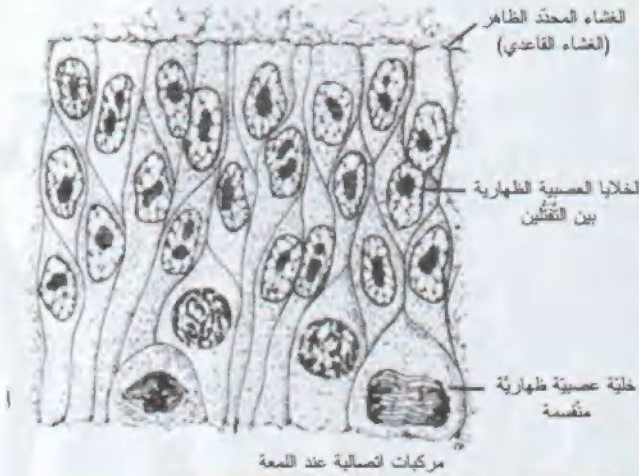 الغشاء المحدّد الظاهر
(الغشاء القاعدي)
الخلايا العصبية الظهارية
بين التفتّلين
خليّة عصبيّة ظهاريّة
منقسمة
ا
مركبات اتصالية عند اللمعة